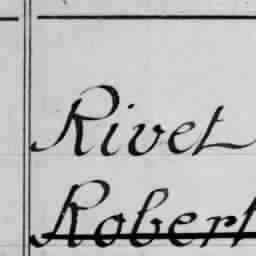 Rivet
Robert